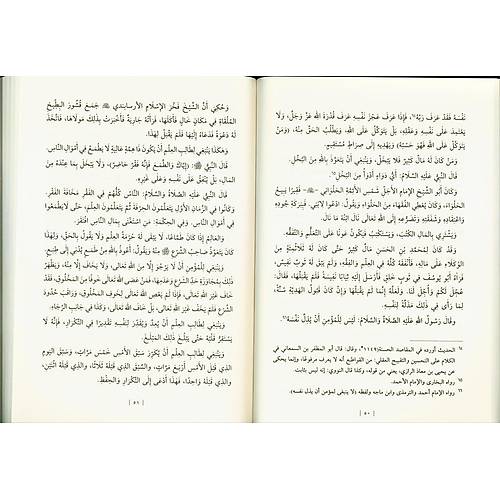 نَفْسَهُ فَقَدْ عَرَفَ رَبَّهُ، فَإِذَا عَرَفَ عَجْزَ نَفْسِهِ عَرَفَ قُدْرَةَ اللهِ عَزَّ وَجَلَّ، وَلَا
يَعْتَمِدُ عَلَى نَفْسِهِ وَعَقْلِهِ، بَلْ يَتَوَكَّلُ عَلَى اللهِ، وَيَطْلُبُ الْحَقَّ مِنْهُ،
وَمَنْ يَتَوَكَّلْ عَلَى اللهِ فَهُوَ حَسْبُهُ، وَيَهْدِيهِ إِلَى صِرَاطٍ مُسْتَقِيمٍ.
وَمَنْ كَانَ لَهُ مَالٌ كَثِيرٌ فَلَا يَبْخَلْ، وَيَنْبَغِي أَنْ يَتَعَوَّذَ بِاللهِ مِنَ الْبُخْلِ.
قَالَ النَّبِيُّ عَلَيْهِ السَّلَامُ: أَيُّ دَاءٍ أَدْوَأُ مِنَ الْبُخْلِ.
وَكَانَ أَبُو الشَّيْخِ الإِمَامِ الأَجَلِّ شَمْسِ الأَئِمَّةِ الْحَلْوَانِيِّ فَقِيرًا يَبِيعُ
الْحَلْوَاءَ، وَكَانَ يُعْطِي الْفُقَهَاءَ مِنَ الْحَلْوَاءِ، وَيَقُولُ: ادْعُوا لِابْنِي. فَبِبَرَكَةِ جُودِهِ
وَاعْتِقَادِهِ وَشَفَقَتِهِ وَتَضَرُّعِهِ إِلَى اللهِ تَعَالَى نَالَ ابْنُهُ مَا نَالَ.
وَيَشْتَرِي بِالْمَالِ الْكُتُبَ، وَيَسْتَكْتِبُ فَيَكُونُ عَوْنًا عَلَى التَّعَلُّمِ وَالتَّفَقُّهِ.
وَقَدْ كَانَ لِمُحَمَّدِ بْنِ الْحَسَنِ مَالٌ كَثِيرٌ حَتَّى كَانَ لَهُ ثَلَاثُمِئَةٍ مِنَ
الْوُكَلَاءِ عَلَى مَالِهِ، فَأَنْفَقَهُ كُلَّهُ فِي الْعِلْمِ وَالْفِقْهِ، وَلَمْ يَبْقَ لَهُ ثَوْبٌ نَفِيسٌ،
فَرَآهُ أَبُو يُوسُفَ فِي ثَوْبٍ خَلَقٍ فَأَرْسَلَ إِلَيْهِ ثِيَابًا نَفِيسَةً فَلَمْ يَقْبَلْهَا، فَقَالَ:
عُجِّلَ لَكُمْ وَأُجِّلَ لَنَا. وَلَعَلَّهُ إِنَّمَا لَمْ يَقْبَلْهَا وَإِنْ كَانَ قَبُولُ الْهَدِيَّةِ سُنَّةً،
لِمَا رَأَى فِي ذَلِكَ مَذَلَّةً لِنَفْسِهِ.
وَقَالَ رَسُولُ اللهِ عَلَيْهِ الصَّلَاةُ وَالسَّلَامُ: لَيْسَ لِلْمُؤْمِنِ أَنْ يُذِلَّ نَفْسَهُ
الحديث أورده في المقاصد الحسنة «١١٤٩»، وقال: قال أبو المظفر بن السمعاني في
الكلام على التحسين والتقبيح العقلي: من القواطع أنه لا يعرف مرفوعًا، وإنما يحكى
عن يحيى بن معاذ الرازي، يعني من قوله، وكذا قال النووي: إنه ليس بثابت.
رواه البخاري والإمام الأحمد.
رواه الإمام أحمد والترمذي وابن ماجه ولفظه (لا ينبغي لمؤمن أن يذل نفسه).
| ٥٠ |
وَحُكِيَ أَنَّ الشَّيْخَ فَخْرَ الإِسْلَامِ الأَرْسَابَنْدِي جَمَعَ قُشُورَ الْبِطِّيخِ
الْمُلْقَاةَ فِي مَكَانٍ خَالٍ فَأَكَلَهَا، فَرَأَتْهُ جَارِيَةٌ فَأَخْبَرَتْ بِذَلِكَ مَوْلَاهَا، فَاتَّخَذَ
لَهُ دَعْوَةً فَدَعَاهُ إِلَيْهَا فَلَمْ يَقْبَلْ لِهَذَا.
وَهَكَذَا يَنْبَغِي لِطَالِبِ الْعِلْمِ أَنْ يَكُونَ ذَا هِمَّةٍ عَالِيَةٍ لَا يَطْمَعُ فِي أَمْوَالِ النَّاسِ.
قَالَ النَّبِيُّ ﷺ: إِيَّاكَ وَالطَّمَعَ فَإِنَّهُ فَقْرٌ حَاضِرٌ، وَلَا يَبْخَلُ بِمَا عِنْدَهُ مِنَ
الْمَالِ، بَلْ يُنْفِقُ عَلَى نَفْسِهِ وَعَلَى غَيْرِهِ.
قَالَ النَّبِيُّ عَلَيْهِ الصَّلَاةُ وَالسَّلَامُ: النَّاسُ كُلُّهُمْ فِي الْفَقْرِ مَخَافَةَ الْفَقْرِ.
وَكَانُوا فِي الزَّمَانِ الأَوَّلِ يَتَعَلَّمُونَ الْحِرْفَةَ ثُمَّ يَتَعَلَّمُونَ الْعِلْمَ، حَتَّى لَا يَطْمَعُوا
فِي أَمْوَالِ النَّاسِ. وَفِي الْحِكْمَةِ: مَنِ اسْتَغْنَى بِمَالِ النَّاسِ افْتَقَرَ.
وَالْعَالِمُ إِذَا كَانَ طَمَّاعًا، لَا يَبْقَى لَهُ حُرْمَةُ الْعِلْمِ وَلَا يَقُولُ بِالْحَقِّ، وَلِهَذَا
كَانَ يَتَعَوَّذُ صَاحِبُ الشَّرْعِ ﷺ مِنْهُ، وَيَقُولُ: أَعُوذُ بِاللهِ مِنْ طَمَعٍ يُدْنِي إِلَى طَبَعٍ.
وَيَنْبَغِي لِلْمُؤْمِنِ أَنْ لَا يَرْجُوَ إِلَّا مِنَ اللهِ تَعَالَى، وَلَا يَخَافَ إِلَّا مِنْهُ، وَيَظْهَرُ
ذَلِكَ بِمُجَاوَزَةِ حَدِّ الشَّرْعِ وَعَدَمِهَا، فَمَنْ عَصَى اللهَ تَعَالَى خَوْفًا مِنَ الْمَخْلُوقِ، فَقَدْ
خَافَ غَيْرَ اللهِ تَعَالَى، فَإِذَا لَمْ يَعْصِ اللهَ تَعَالَى لِخَوْفِ الْمَخْلُوقِ، وَرَاقَبَ حُدُودَ
الشَّرْعِ فَلَمْ يَخَفْ غَيْرَ اللهِ تَعَالَى، بَلْ خَافَ اللهَ تَعَالَى، وَكَذَا فِي جَانِبِ الرَّجَاءِ.
وَيَنْبَغِي لِطَالِبِ الْعِلْمِ أَنْ يَعُدَّ وَيُقَدِّرَ لِنَفْسِهِ تَقْدِيرًا فِي التَّكْرَارِ، فَإِنَّهُ لَا
يَسْتَقِرُّ قَلْبُهُ حَتَّى يَبْلُغَ ذَلِكَ الْمَبْلَغَ.
وَيَنْبَغِي لِطَالِبِ الْعِلْمِ أَنْ يُكَرِّرَ سَبَقَ الأَمْسِ خَمْسَ مَرَّاتٍ، وَسَبَقَ الْيَوْمِ
الَّذِي قَبْلَ الأَمْسِ أَرْبَعَ مَرَّاتٍ، وَالسَّبَقَ الَّذِي قَبْلَهُ ثَلَاثَ، وَالَّذِي قَبْلَهُ اثْنَيْنِ،
وَالَّذِي قَبْلَهُ وَاحِدًا، فَهَذَا أَدْعَى إِلَى التَّكْرَارِ وَالْحِفْظِ.
| ٥١ |